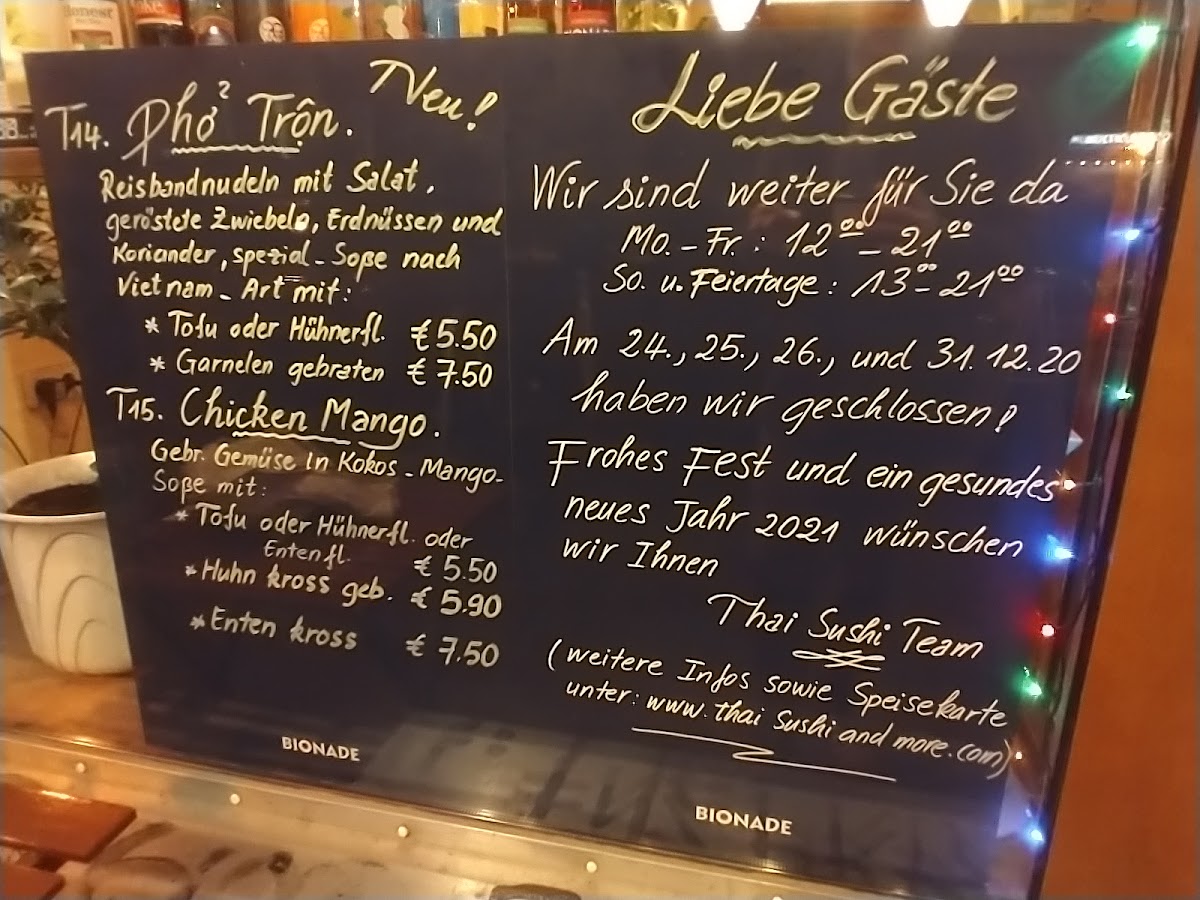 Neu!
T14. Phở Trộn.
Reisbandnudeln mit Salat,
geröstete Zwiebeln, Erdnüssen und
Koriander, spezial-Soße nach
Vietnam-Art mit:
* Tofu oder Hühnerfl. € 5.50
* Garnelen gebraten € 7.50
T15. Chicken Mango.
Gebr. Gemüse in Kokos-Mango-
Soße mit:
* Tofu oder Hühnerfl. oder
Entenfl. € 5.50
* Huhn kross geb. € 5.90
* Enten kross € 7.50
BIONADE
Liebe Gäste
Wir sind weiter für Sie da
Mo. - Fr.: 12⁰⁰ - 21⁰⁰
So. u. Feiertage: 13⁰⁰ - 21⁰⁰
Am 24., 25., 26., und 31.12.20
haben wir geschlossen!
Frohes Fest und ein gesundes
neues Jahr 2021 wünschen
wir Ihnen
Thai Sushi Team
(weitere Infos sowie Speisekarte
unter: www.thai Sushi and more.com)
BIONADE